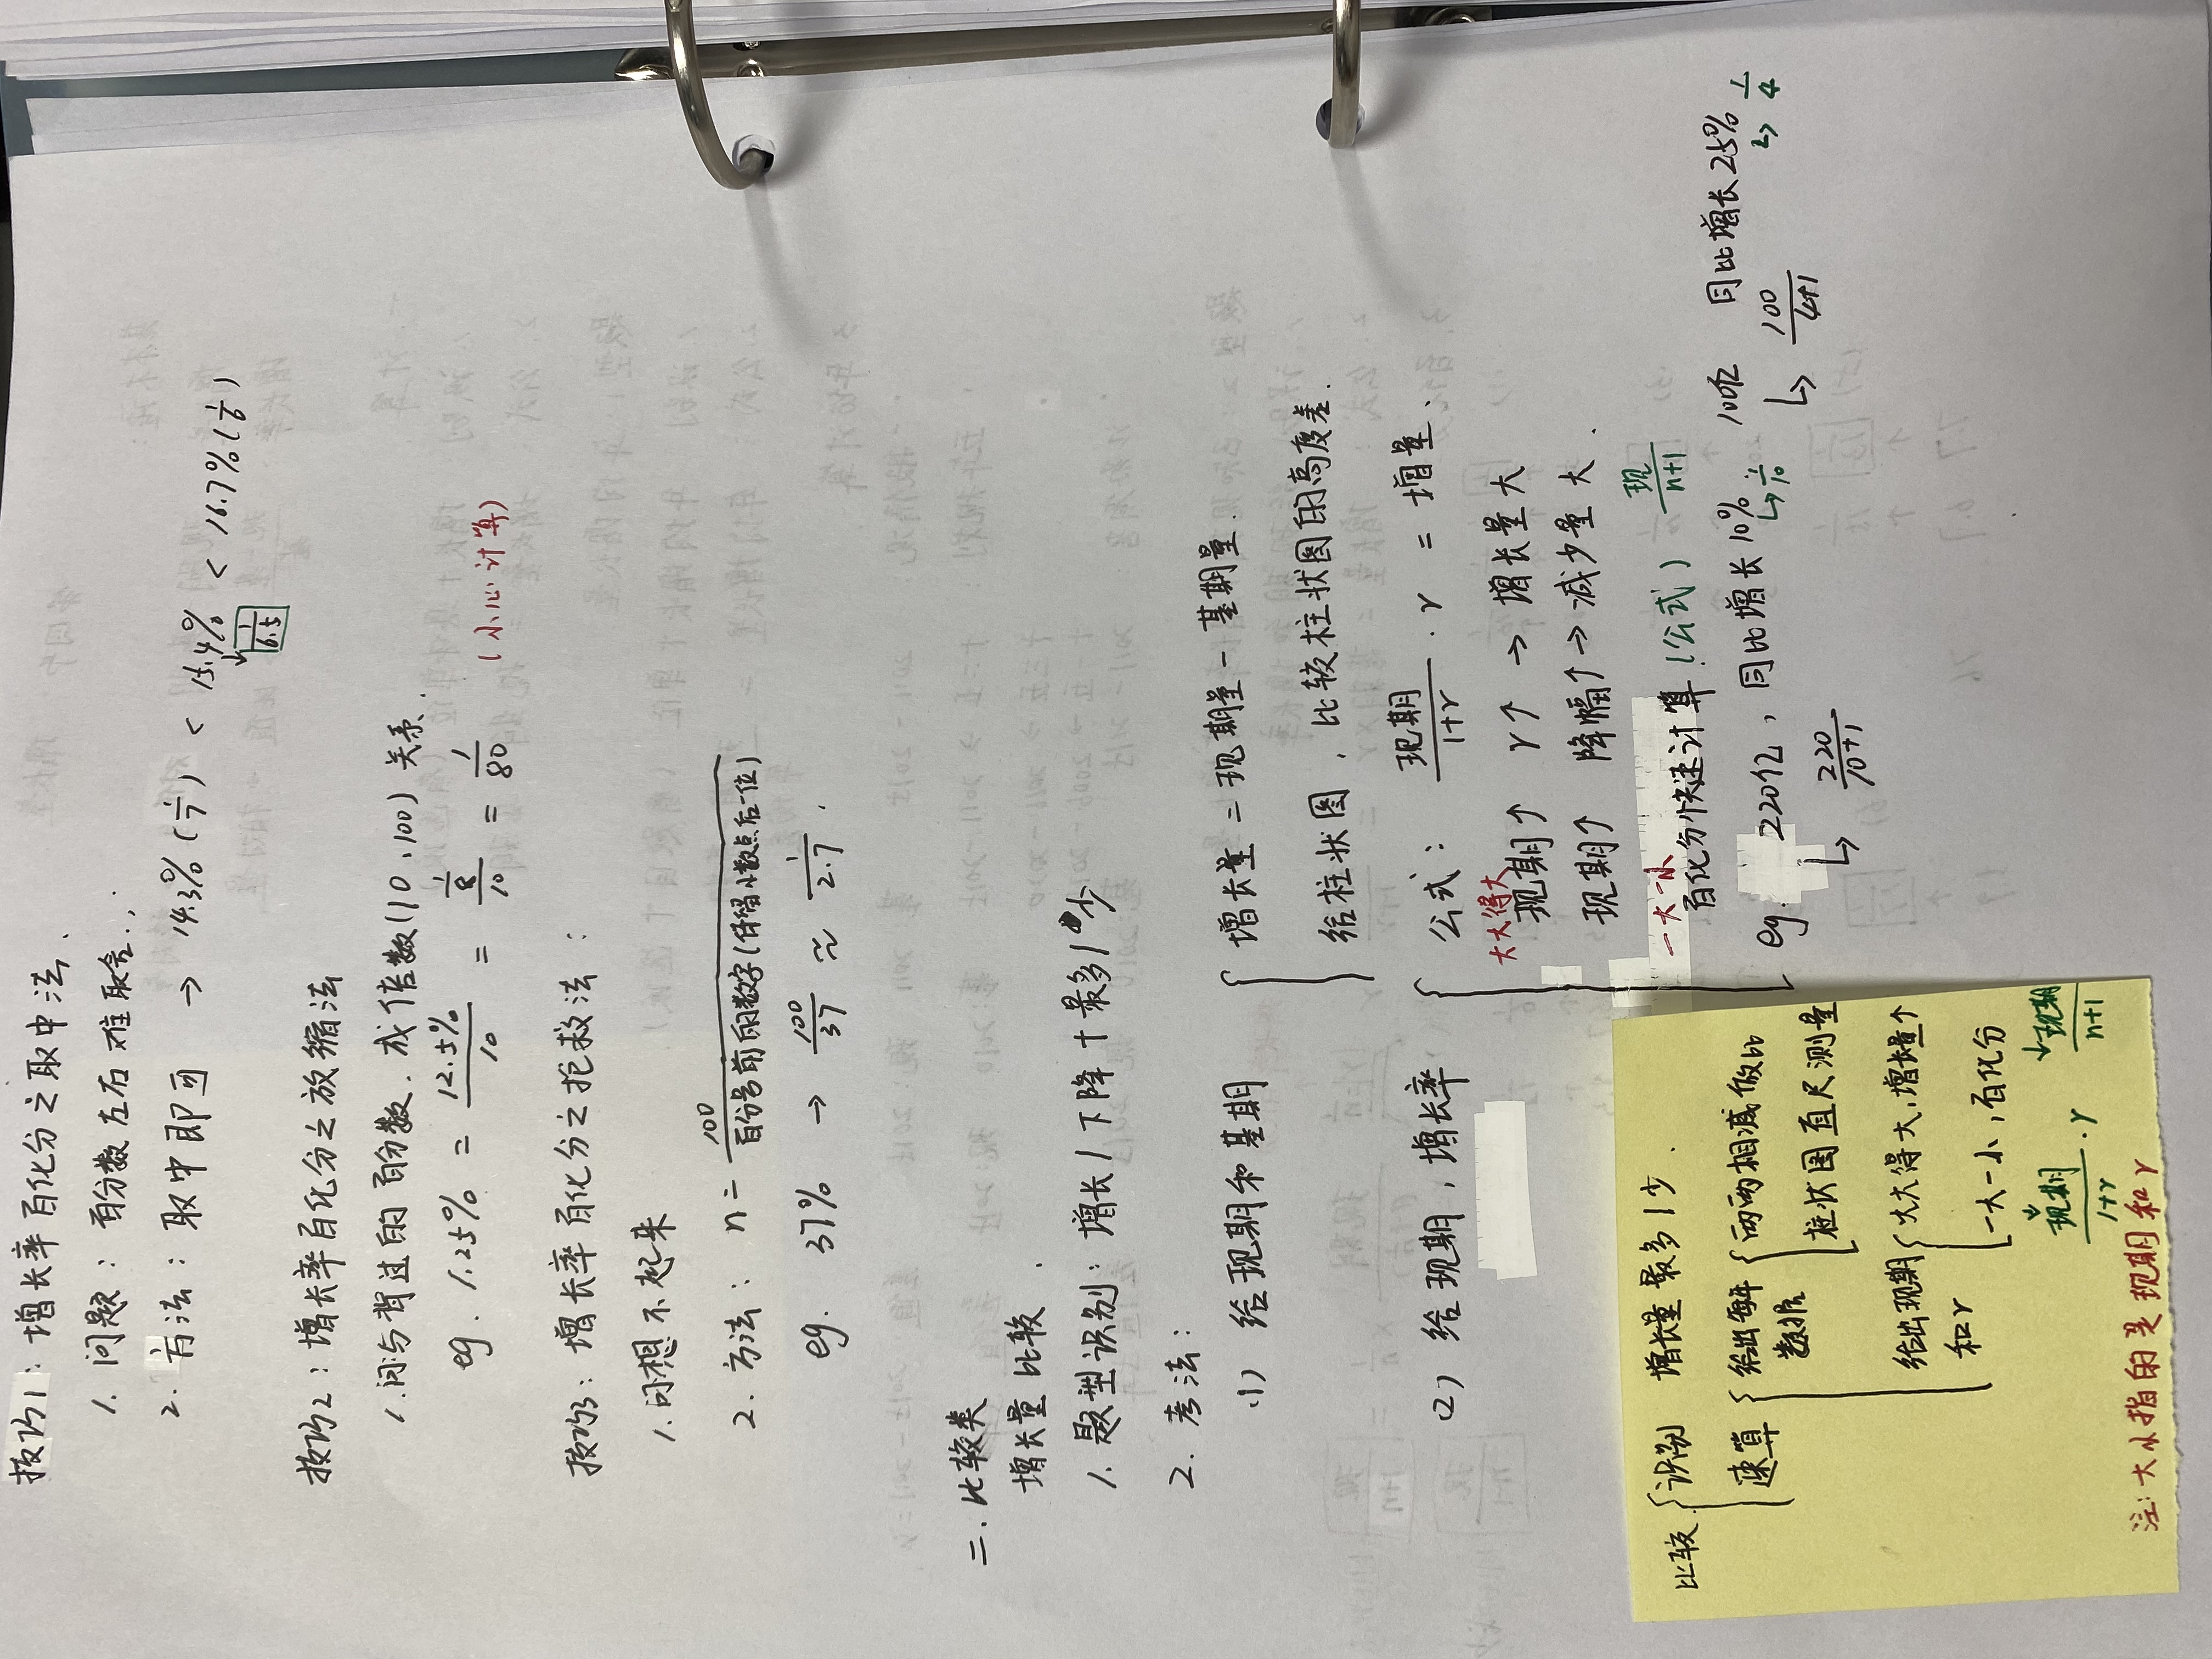 技巧1：增长率百化分之取中法.
1. 问题：百分数左右难取舍.
2. 方法：取中即可 → 14.3% (1/7) < 15.4% < 16.7% (1/6)
↓ 1/6.5
技巧2：增长率百化分之放缩法
1. 问与背过的百分数.成倍数(10、100)关系.
eg. 1.25% = 12.5%/10 = 1/8/10 = 1/80 (小心计算)
技巧3：增长率百化分之拯救法：
1. 问想不起来
2. 方法：n = 100/百分号前的数字(保留小数点后一位)
eg. 37% → 100/37 ≈ 1/2.7.
二. 比较类
增长量比较.
1. 题型识别：增长/下降+最多/少
2. 考法：
(1) 给现期和基期 { 增长量=现期量-基期量.
给柱状图，比较柱状图的高度差.
(2) 给现期，增长率 { 公式：现期/1+r · r = 增量.
大大得大 现期↑ r↑ → 增长量大
现期↑ 降幅↑ → 减少量大.
一大一小 百化分快速计算(公式) 现/n+1
eg. 220亿，同比增长10% ↳ 1/10 100亿 同比增长25% ↳ 1/4
↳ 220/10+1 ↳ 100/4+1
比较 { 识别 增长量最多/少.
速算 { 给出每年数据 { 两两相减做比
柱状图直尺测量
给出现期和r { 大大得大，增长量个
一大一小，百化分
现期/1+r · r ↓ 现期/n+1
注：大小指的是现期和r